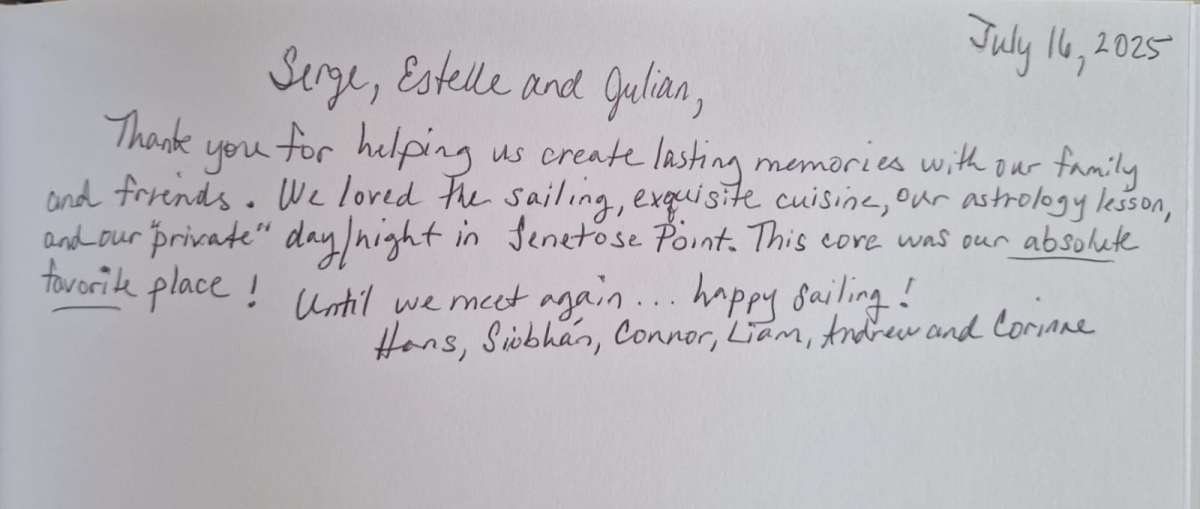 July 16, 2025
Serge, Estelle and Julian,
Thank you for helping us create lasting memories with our family
and friends. We loved the sailing, exquisite cuisine, our astrology lesson,
and our "private" day/night in Senetose Point. This cove was our absolute
favorite place! Until we meet again... happy sailing!
Hans, Siobhán, Connor, Liam, Andrew and Corinne